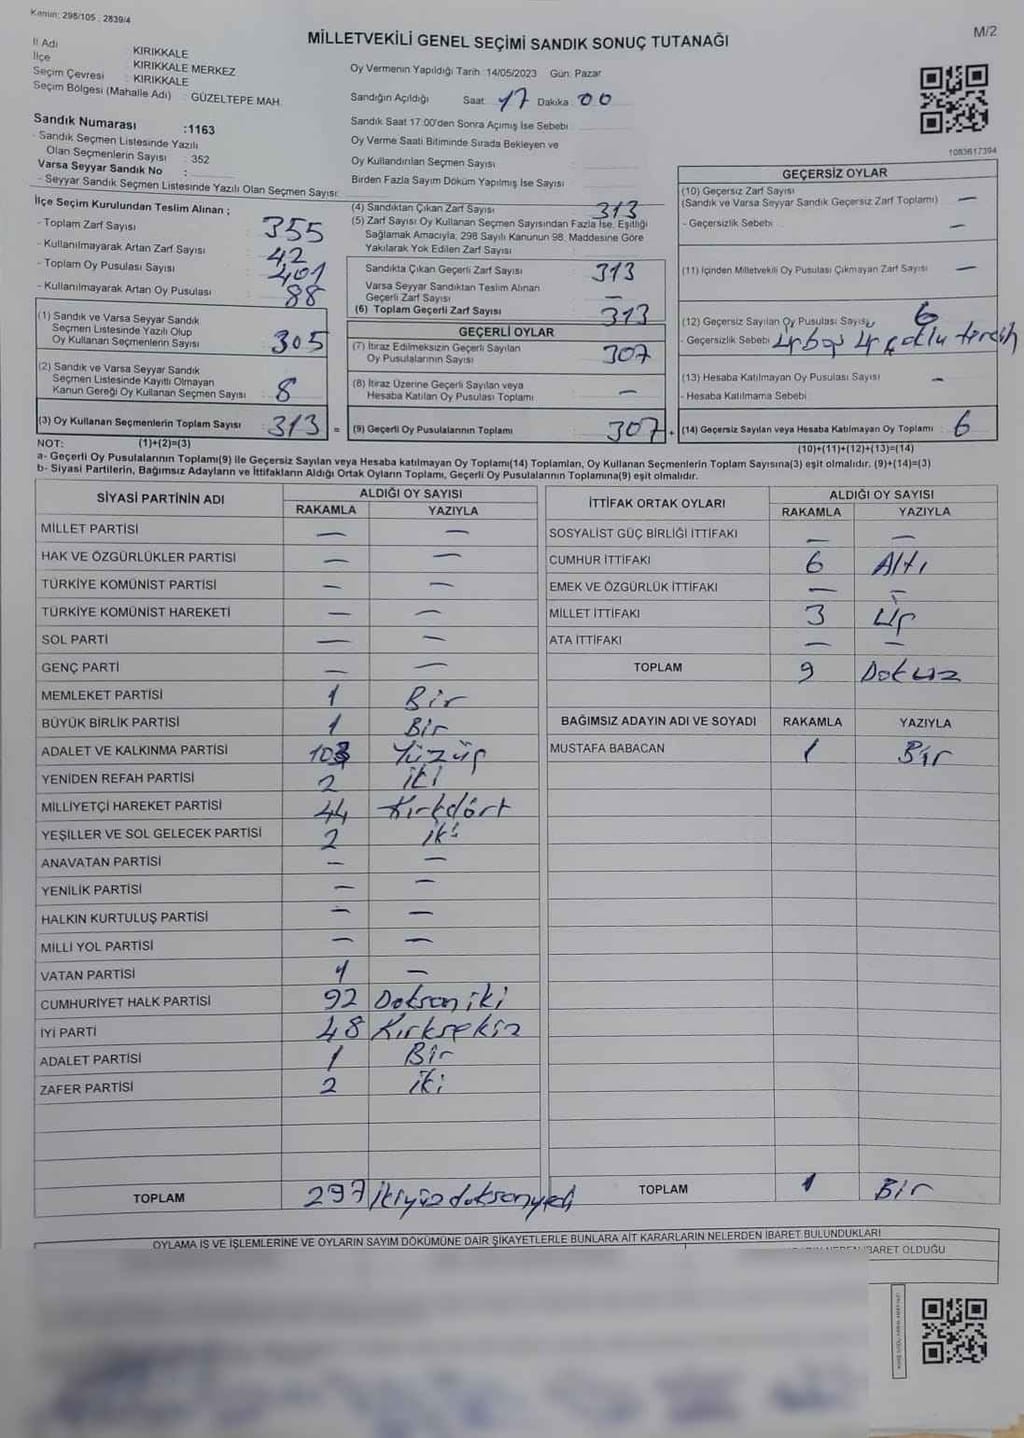 Kanun: 298/105 , 2839/4
M/2
MİLLETVEKİLİ GENEL SEÇİMİ SANDIK SONUÇ TUTANAĞI
İl Adı KIRIKKALE
İlçe : KIRIKKALE MERKEZ
Seçim Çevresi : KIRIKKALE
Seçim Bölgesi (Mahalle Adı) : GÜZELTEPE MAH.
Sandık Numarası :1163
- Sandık Seçmen Listesinde Yazılı
Olan Seçmenlerin Sayısı : 352
Varsa Seyyar Sandık No :
- Seyyar Sandık Seçmen Listesinde Yazılı Olan Seçmen Sayısı:
Oy Vermenin Yapıldığı Tarih :14/05/2023 Gün: Pazar
Sandığın Açıldığı Saat: 17 Dakika: 00
Sandık Saat 17:00'den Sonra Açımış İse Sebebi
Oy Verme Saati Bitiminde Sırada Bekleyen ve
Oy Kullandırılan Seçmen Sayısı
Birden Fazla Sayım Döküm Yapılmış İse Sayısı
1083617394
İlçe Seçim Kurulundan Teslim Alınan ;
- Toplam Zarf Sayısı : 355
- Kullanılmayarak Artan Zarf Sayısı : 42
- Toplam Oy Pusulası Sayısı : 401
- Kullanılmayarak Artan Oy Pusulası : 88
(1) Sandık ve Varsa Seyyar Sandık
Seçmen Listesinde Yazılı Olup
Oy Kullanan Seçmenlerin Sayısı : 305
(2) Sandık ve Varsa Seyyar Sandık
Seçmen Listesinde Kayıtlı Olmayan
Kanun Gereği Oy Kullanan Seçmen Sayısı : 8
(3) Oy Kullanan Seçmenlerin Toplam Sayısı : 313 =
(4) Sandıktan Çıkan Zarf Sayısı : 313
(5) Zarf Sayısı Oy Kullanan Seçmen Sayısından Fazla İse, Eşitliği
Sağlamak Amacıyla, 298 Sayılı Kanunun 98. Maddesine Göre
Yakılarak Yok Edilen Zarf Sayısı :
Sandıkta Çıkan Geçerli Zarf Sayısı : 313
Varsa Seyyar Sandıktan Teslim Alınan
Geçerli Zarf Sayısı : —
(6) Toplam Geçerli Zarf Sayısı : 313
GEÇERLİ OYLAR
(7) İtiraz Edilmeksizin Geçerli Sayılan
Oy Pusulalarının Sayısı : 307
(8) İtiraz Üzerine Geçerli Sayılan veya
Hesaba Katılan Oy Pusulası Toplamı : —
(9) Geçerli Oy Pusulalarının Toplamı : 307 +
GEÇERSİZ OYLAR
(10) Geçersiz Zarf Sayısı
(Sandık ve Varsa Seyyar Sandık Geçersiz Zarf Toplamı) : —
- Geçersizlik Sebebi : —
(11) İçinden Milletvekili Oy Pusulası Çıkmayan Zarf Sayısı : —
(12) Geçersiz Sayılan Oy Pusulası Sayısı : 6
- Geçersizlik Sebebi : 4 çoklu tercih
(13) Hesaba Katılmayan Oy Pusulası Sayısı : —
- Hesaba Katılmama Sebebi :
(14) Geçersiz Sayılan veya Hesaba Katılmayan Oy Toplamı : 6
NOT: (1)+(2)=(3)
(10)+(11)+(12)+(13)=(14)
a- Geçerli Oy Pusulalarının Toplamı(9) ile Geçersiz Sayılan veya Hesaba katılmayan Oy Toplamı(14) Toplamları, Oy Kullanan Seçmenlerin Toplam Sayısına(3) eşit olmalıdır. (9)+(14)=(3)
b- Siyasi Partilerin, Bağımsız Adayların ve İttifakların Aldığı Ortak Oyların Toplamı, Geçerli Oy Pusulalarının Toplamına(9) eşit olmalıdır.
SİYASİ PARTİNİN ADI ALDIĞI OY SAYISI
RAKAMLA YAZIYLA
MİLLET PARTİSİ — —
HAK VE ÖZGÜRLÜKLER PARTİSİ — —
TÜRKİYE KOMÜNİST PARTİSİ — —
TÜRKİYE KOMÜNİST HAREKETİ — —
SOL PARTİ — —
GENÇ PARTİ — —
MEMLEKET PARTİSİ 1 Bir
BÜYÜK BİRLİK PARTİSİ 1 Bir
ADALET VE KALKINMA PARTİSİ 103 Yüzüç
YENİDEN REFAH PARTİSİ 2 iki
MİLLİYETÇİ HAREKET PARTİSİ 44 Kırkdört
YEŞİLLER VE SOL GELECEK PARTİSİ 2 iki
ANAVATAN PARTİSİ — —
YENİLİK PARTİSİ — —
HALKIN KURTULUŞ PARTİSİ — —
MİLLİ YOL PARTİSİ — —
VATAN PARTİSİ 1 —
CUMHURİYET HALK PARTİSİ 92 Doksan iki
İYİ PARTİ 48 Kırksekiz
ADALET PARTİSİ 1 Bir
ZAFER PARTİSİ 2 iki
TOPLAM 297 ikiyüzdoksanyedi
İTTİFAK ORTAK OYLARI ALDIĞI OY SAYISI
RAKAMLA YAZIYLA
SOSYALİST GÜÇ BİRLİĞİ İTTİFAKI — —
CUMHUR İTTİFAKI 6 Altı
EMEK VE ÖZGÜRLÜK İTTİFAKI — —
MİLLET İTTİFAKI 3 üç
ATA İTTİFAKI — —
TOPLAM 9 Dokuz
BAĞIMSIZ ADAYIN ADI VE SOYADI RAKAMLA YAZIYLA
MUSTAFA BABACAN 1 Bir
TOPLAM 1 Bir
OYLAMA İŞ VE İŞLEMLERİNE VE OYLARIN SAYIM DÖKÜMÜNE DAİR ŞİKAYETLERLE BUNLARA AİT KARARLARIN NELERDEN İBARET BULUNDUKLARI
İBARET OLDUĞU